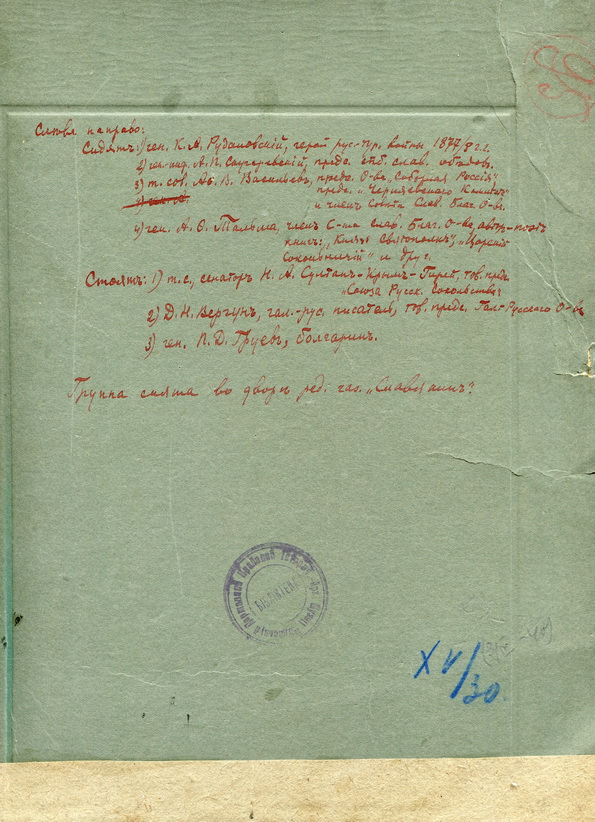 Слѣва направо:
Сидятъ: 1) ген. К. А. Рудановскій, герой рус-тур. войны 1877/8 г.г.
2) ген-инф. А. П. Скугаревскій, предс. слав. объедов.
3) т. сов. Аѳ. В. Васильевъ, предс. О-ва „Соборная Россія"
предс. „Черняевскаго Комитета"
и членъ Совѣта Слав. Благ. О-ва.
4) ген. А. Ѳ. Тальма, членъ С-та Слав. Благ. О-ва, авторъ-поэтъ
книг: „Князь Святополкъ", „Царскій
Сокольничій" и друг.
Стоятъ: 1) т. с., сенаторъ Н. А. Султанъ-Крымъ-Гирей, тов. предс.
„Союза Русск. Сокольства"
2) Д. Н. Вергунъ, гал.-рус. писатель, тов. предс. Гал-Русскаго О-ва
3) ген. П. Д. Груевъ, болгаринъ.
Группа снята во дворѣ ред. газ. „Славянинъ".
XV/30